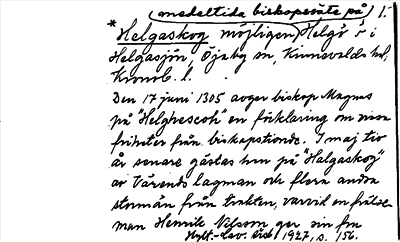 (medeltida biskopssäte på) 1.
* Helgaskog möjligen Helgö i
Helgasjön, Öjaby sn, Kinnevalds hd,
Kronob. l.
Den 17 juni 1305 avger biskop Magnus
på "Helghæscoch" en förklaring om sina
friheter från biskopstionde. I maj tio
år senare gästas han på "Helgaskog"
av Värends lagman och flera andra
stormän från trakten, varvid en frälse-
man Henrik Nilsson ger sin fru
Hylt.-Cav. årsb. 1927, s. 156.